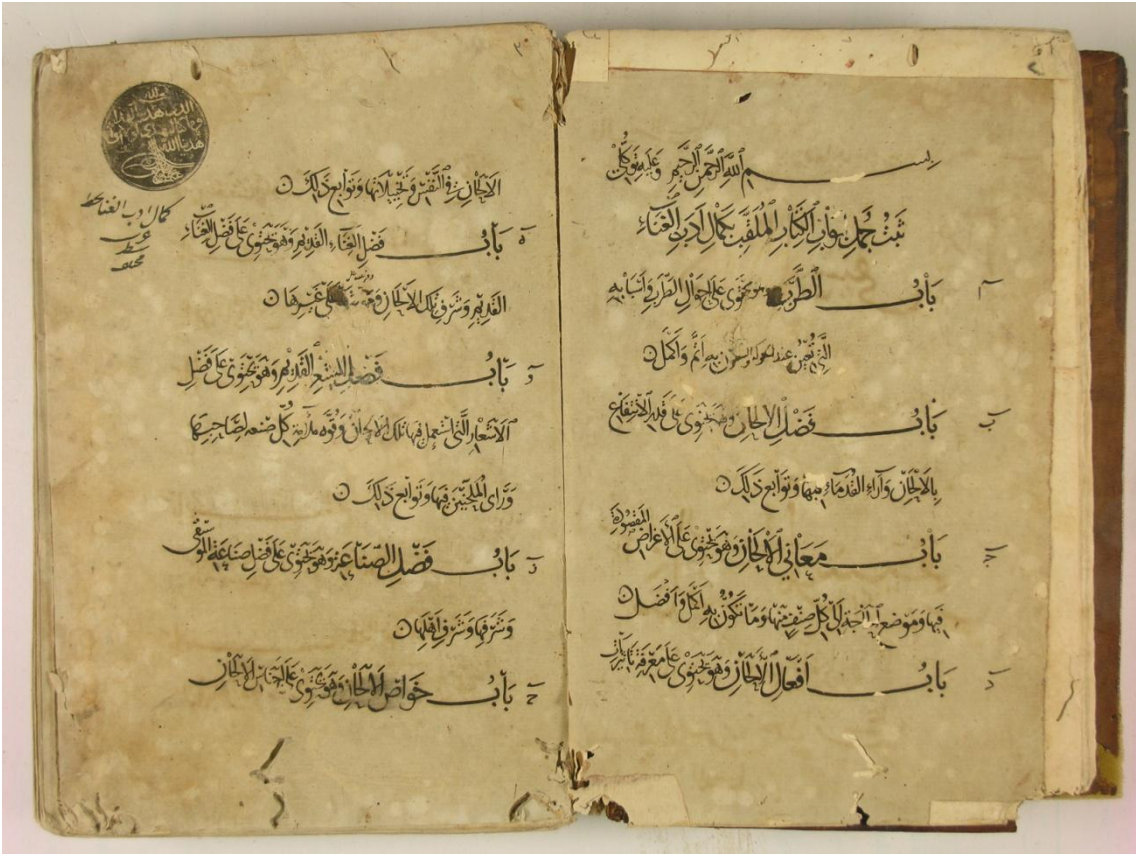 بسم الله الرحمن الرحيم وعليه توكلي
ثبت جمل أبواب الكتاب الملقب بكمال أدب الغناء
آ باب الطرب وهو يحتوي على احوال الطرب واسبابه
التي تعين عند اتم واكمل
ب باب فضل الالحان وهو يحتوي على قدر الانتفاع
بالالحان وآراء القدماء فيها وتوابع ذلك
ج باب معاني الالحان وهو يحتوي على الاغراض المقصودة
فيها وموضع الحاجة الى كل صنف منها وما تكون به اكمل وافضل
د باب افعال الالحان وهو يحتوي على معرفة تاثيرات
الالحان في النفس وتخييلاتها وتوابع ذلك
ه باب فضل الغناء القديم وهو يحتوي على فضل الغناء
القديم وشرف تلك الالحان على غيرها
و باب فضل الشعر القديم وهو يحتوي على فضل
الاشعار التي استعمل فيها تلك الالحان وقوة ملاءمة كل صنعة لصاحبتها
وراي الملحنين فيها وتوابع ذلك
ز باب فضل الصناعة وهو يحتوي على فضل صناعة الموسيقى
وشرفها وشرف اهلها
ح باب خواص الالحان وهو يحتوي على اجناس الالحان
كمال ادب الغنا بخط
عرب